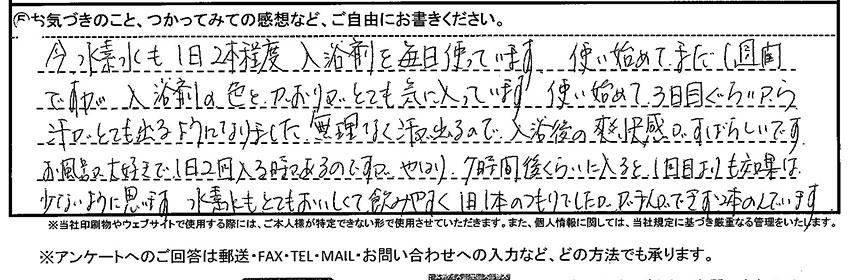 ⑤お気づきのこと、つかってみての感想など、ご自由にお書きください。
今 水素水も1日2本程度 入浴剤を毎日使っています 使い始めてまだ1週間
ですが 入浴剤の色とかおりがとても気に入っています 使い始めて3日目ぐらいから
汗がとても出るようになりました 無理なく汗が出るので、入浴後の爽快感がすばらしいです
お風呂が大好きで1日2回入る時があるのですが、やはり 時間後くらいに入ると、1回目よりも効果は
少ないように思います 水素水もとてもおいしくて飲みやすく1日1本のつもりでしたが 2本のんでいます
※当社印刷物やウェブサイトで使用する際には、ご本人様が特定できない形で使用させていただきます。また、個人情報に関しては、当社規定に基づき厳重なる管理をいたします。
※アンケートへのご回答は郵送・FAX・TEL・MAIL・お問い合わせへの入力など、どの方法でも承ります。